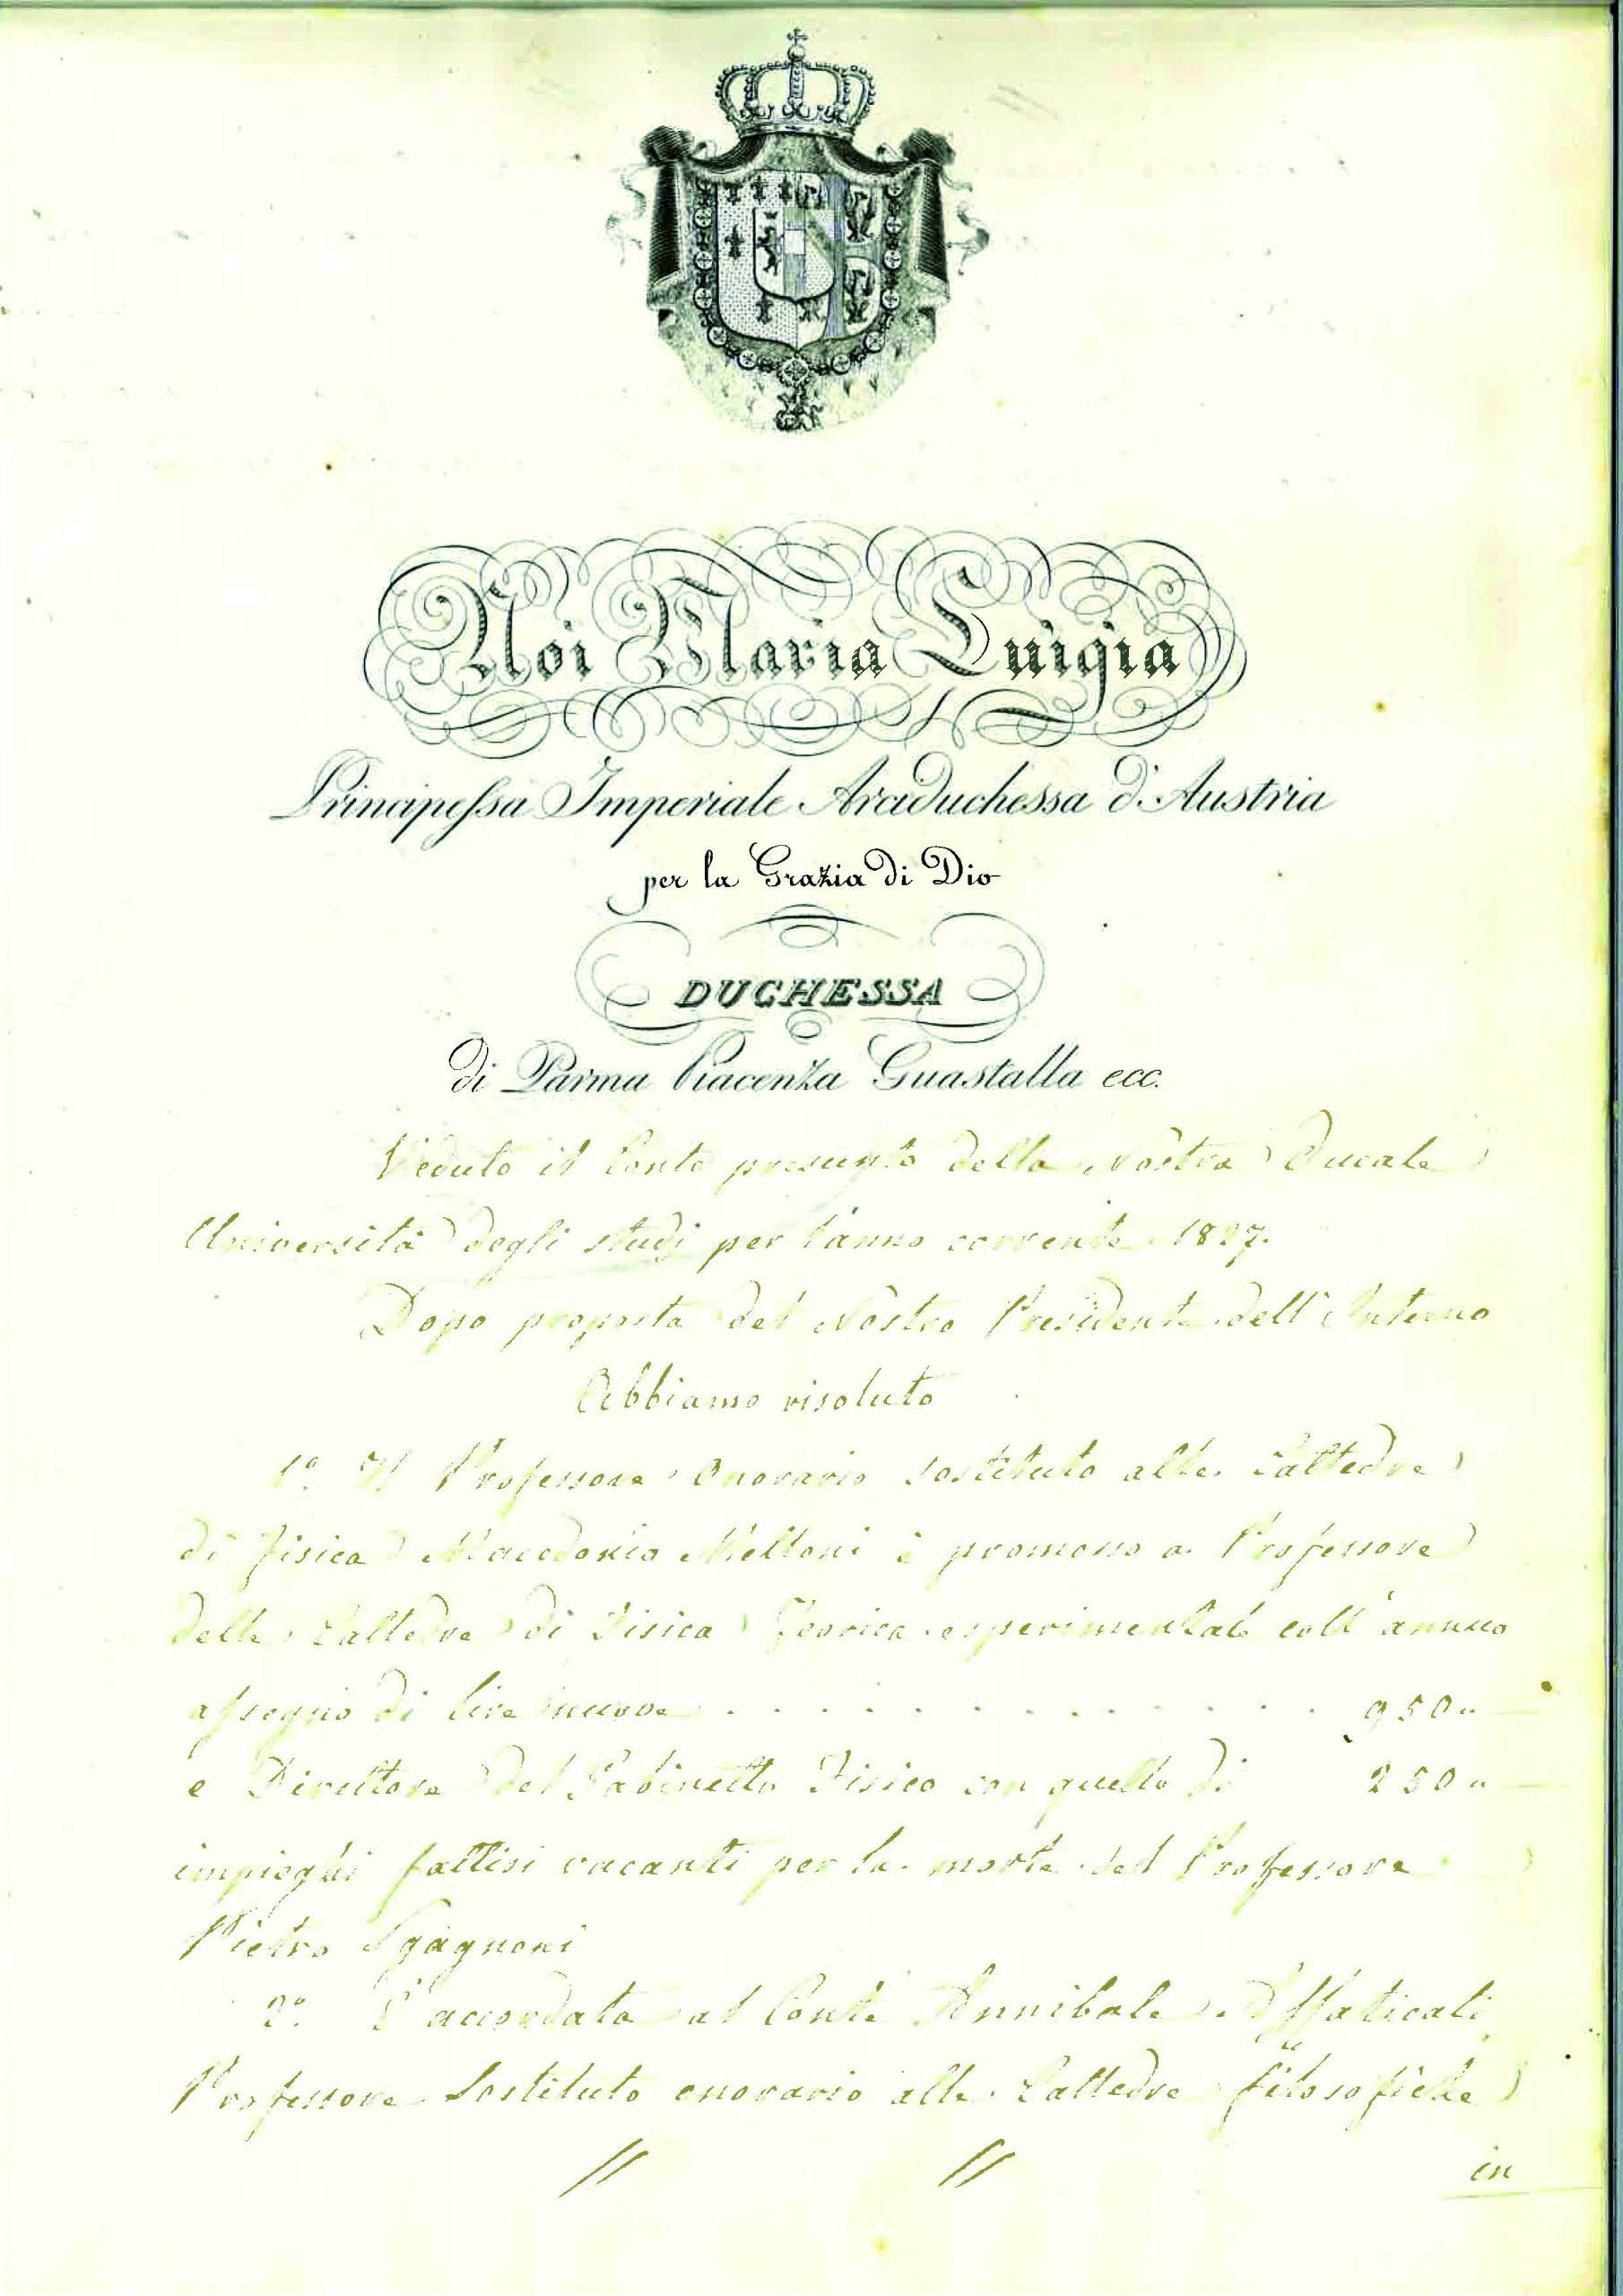 Noi Maria Luigia
Principessa Imperiale Arciduchessa d'Austria
per la Grazia di Dio
DUCHESSA
di Parma Piacenza Guastalla ecc.
Veduto il Conto presunto della Nostra Ducale
Università degli studj per l'anno corrente 1827.
Dopo proposta del Nostro Presidente dell'Interno
Abbiamo risoluto
1º Il Professore Onorario sostituto alle Cattedre
di fisica Macedonio Melloni è promosso a Professore
della Cattedra di Fisica Teorica esperimentale coll'annuo
assegno di lire nuove . . . . . . . . . . . . . 950 "
e Direttore del Gabinetto Fisico con quello di 250 "
impieghi fattisi vacanti per la morte del Professore
Pietro Sgagnoni
2º È accordata al Conte Annibale
Professore Sostituto onorario alle Cattedre filosofiche
// //
in